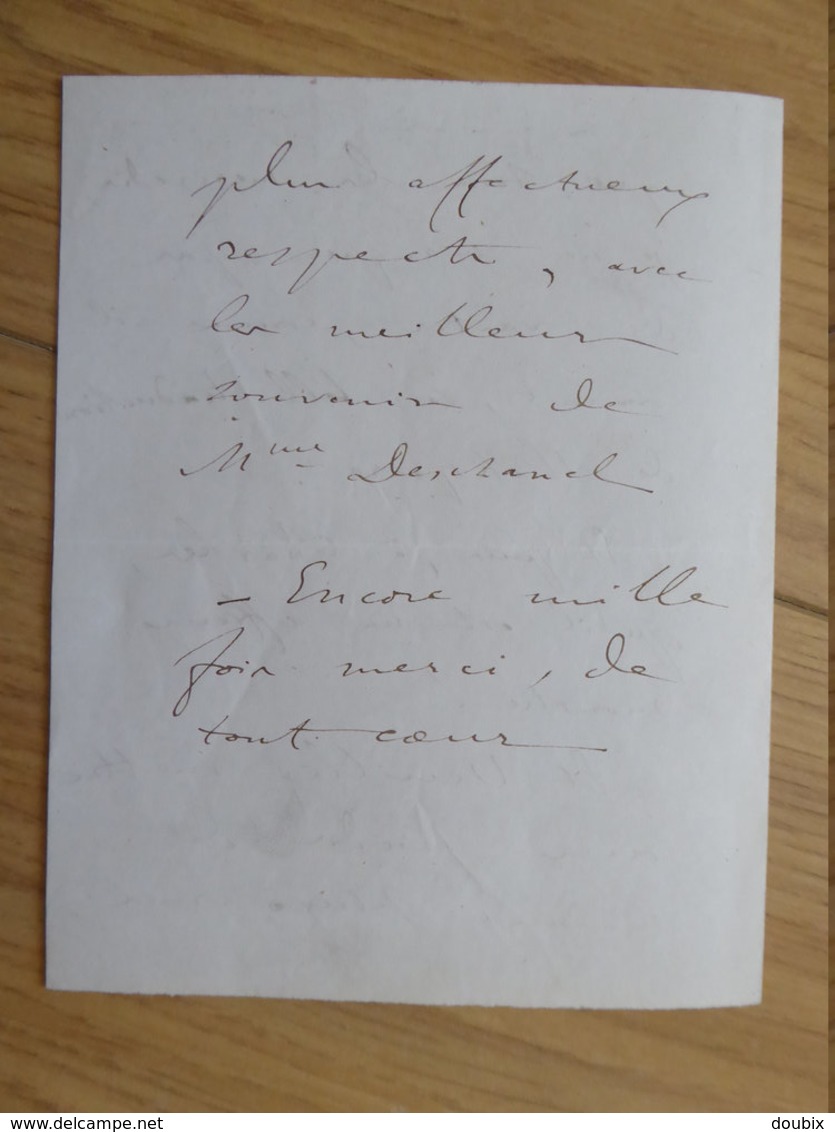 plus affectueux
respects, avec
les meilleurs
souvenirs de
Mme Deschanel
– Encore mille
fois merci, de
tout cœur
www.delcampe.net
doubix